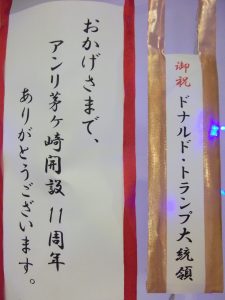 おかげさまで、
アンリ茅ヶ崎開設11周年
ありがとうございます。
御祝
ドナルド・トランプ大統領